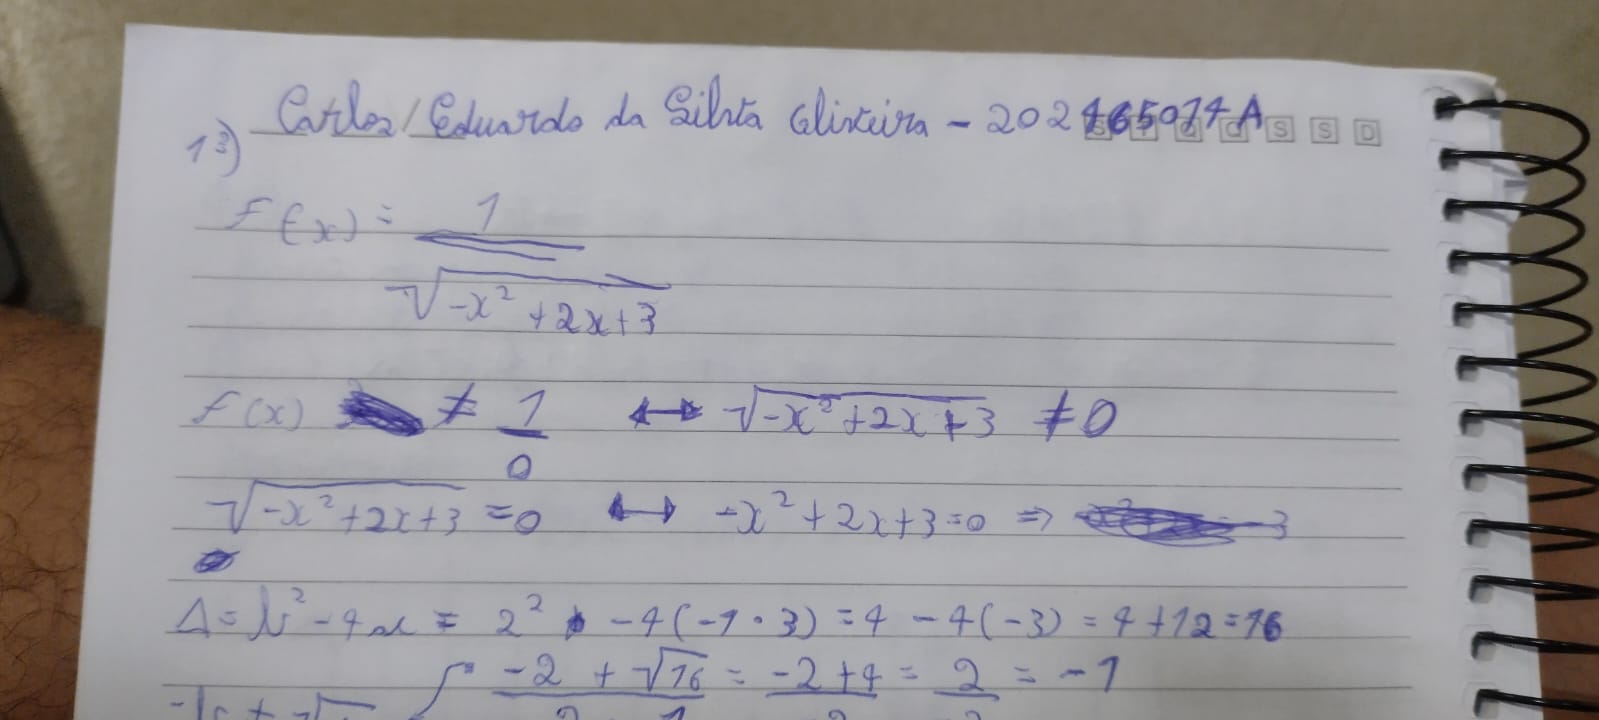 Carlos Eduardo da Silva Oliveira - 202165074A S S D
1ª)
f(x) = 1
√-x²+2x+3
f(x) ≠ 1 ↔ √-x²+2x+3 ≠0
0
√-x²+2x+3 =0 ↔ -x²+2x+3=0 ⇒ -3
Δ=b²-4ac = 2² -4(-1·3) =4 -4(-3) =4+12=16
-2 + √16 = -2+4 = 2 = -1